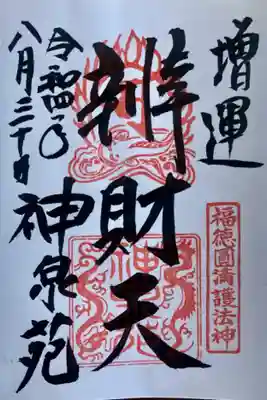 増運
福徳圓満護法神
辨財天
神泉苑
令和四年
八月三十日